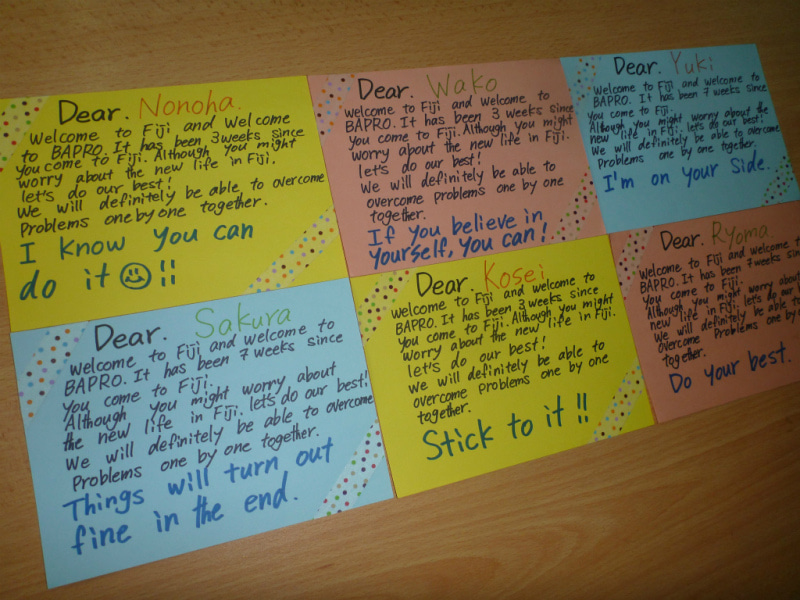 Dear. Nonoha.
Welcome to Fiji and Welcome
to BAPRO. It has been 3weeks since
you come to Fiji. Although you might
worry about the new life in Fiji.
let's do our best!
We will definitely be able to overcome
Problems one by one together.
I know you can
do it !!
Dear. Wako
welcome to Fiji and Welcome to
BAPRO. It has been 3 weeks since
you come to Fiji. Although you might
worry about the new life in Fiji.
let's do our best!
We will definitely be able to
overcome problems one by one
together.
If you believe in
yourself, you can!
Dear. Yuki
Welcome to Fiji and welcome to
BAPRO. It has been 7 weeks since
you come to Fiji.
Although you might worry about the
new life in Fiji. let's do our best!
We will definitely be able to overcome
Problems one by one together.
I'm on your side.
Dear. Sakura
Welcome to Fiji and welcome to
BAPRO. It has been 7 weeks since
you come to Fiji.
Although you might worry about
the new life in Fiji. let's do our best!
We will definitely be able to overcome
Problems one by one together.
Things will turn out
fine in the end.
Dear. Kosei
welcome to Fiji and welcome to
BAPRO. It has been 3 weeks since
you come to Fiji. Although you might
worry about the new life in Fiji.
let's do our best!
We will definitely be able to
overcome problems one by one
together.
Stick to it !!
Dear. Ryoma
Welcome to Fiji and welcome to
BAPRO. It has been 7 weeks since
you come to Fiji.
Although you might worry about
new life in Fiji. let's do our
We will definitely be able to
overcome Problems one by
together.
Do your best.